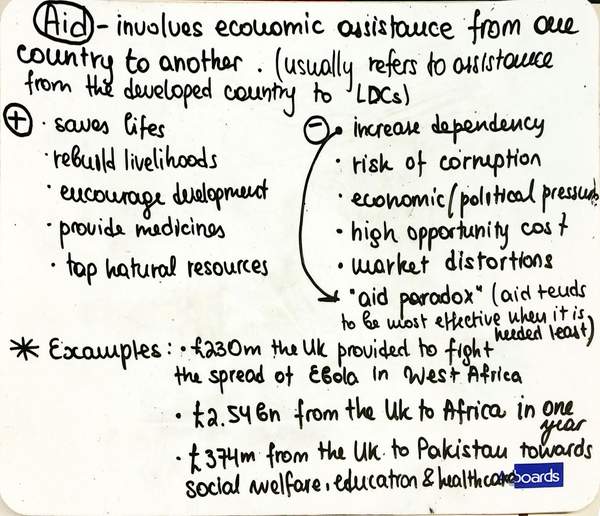 Aid - involves economic assistance from one
country to another. (usually refers to assistance
from the developed country to LDCs)
+
· saves lifes
· rebuild livelihoods
· encourage development
· provide medicines
· tap natural resources
-
• increase dependency
• risk of corruption
• economic/political pressure
• high opportunity cost
• market distortions
"aid paradox" (aid tends
to be most effective when it is
needed least)
* Examples: • £230m the UK provided to fight
the spread of Ebola in West Africa
• £2.54bn from the UK to Africa in one
year
• £374m from the UK to Pakistan towards
social welfare, education & healthcare
boards